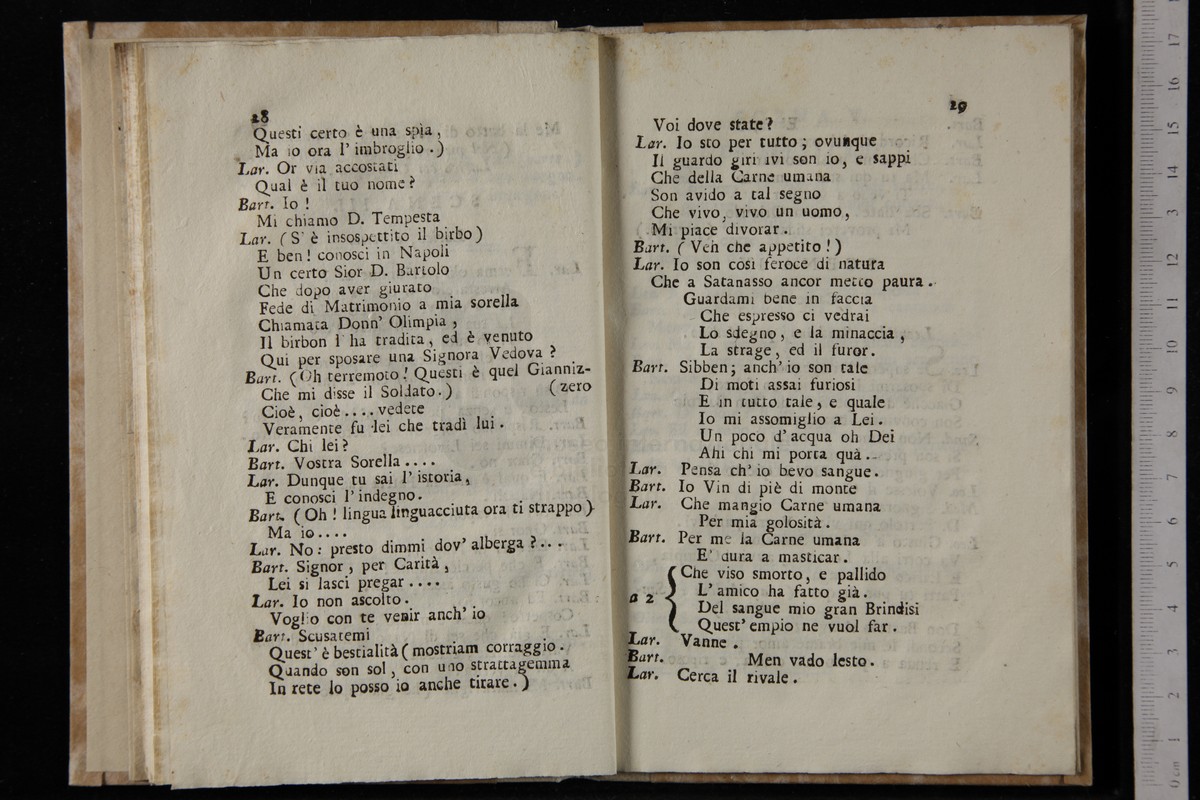 28
Questi certo è una spia,
Ma io ora l'imbroglio.)
Lar. Or via accostati
Qual è il tuo nome?
Bart. Io!
Mi chiamo D. Tempesta
Lar. (S' è insospettito il birbo)
E ben! conosci in Napoli
Un certo Sior D. Bartolo
Che dopo aver giurato
Fede di Matrimonio a mia sorella
Chiamata Donn' Olimpia,
Il birbon l' ha tradita, ed è venuto
Qui per sposare una Signora Vedova?
Bart. (Oh terremoto! Questi è quel Gianniz-
(zero
Che mi disse il Soldato.)
Cioè, cioè.... vedete
Veramente fu lei che tradì lui.
Lar. Chi lei?
Bart. Vostra Sorella....
Lar. Dunque tu sai l'istoria,
E conosci l'indegno.
Bart. (Oh! lingua linguacciuta ora ti strappo)
Ma io....
Lar. No: presto dimmi dov' alberga?...
Bart. Signor, per Carità,
Lei si lasci pregar....
Lar. Io non ascolto.
Voglio con te venir anch' io
Bart. Scusatemi
Quest' è bestialità (mostriam corraggio.
Quando son sol, con uno strattagemma
In rete lo posso io anche tirare.)
29
Voi dove state?
Lar. Io sto per tutto; ovunque
Il guardo giri ivi son io, e sappi
Che della Carne umana
Son avido a tal segno
Che vivo, vivo un uomo,
Mi piace divorar.
Bart. (Veh che appetito!)
Lar. Io son così feroce di natura
Che a Satanasso ancor metto paura.
Guardami bene in faccia
Che espresso ci vedrai
Lo sdegno, e la minaccia,
La strage, ed il furor.
Bart. Sibben; anch' io son tale
Di moti assai furiosi
E in tutto tale, e quale
Io mi assomiglio a Lei.
Un poco d' acqua oh Dei
Ahi chi mi porta quà..
Lar. Pensa ch' io bevo sangue.
Bart. Io Vin di piè di monte
Lar. Che mangio Carne umana
Per mia golosità.
Bart. Per me la Carne umana
E' dura a masticar.
a 2 { Che viso smorto, e pallido
L' amico ha fatto già.
Del sangue mio gran Brindisi
Quest' empio ne vuol far.
Lar. Vanne.
Bart. Men vado lesto.
Lar. Cerca il rivale.